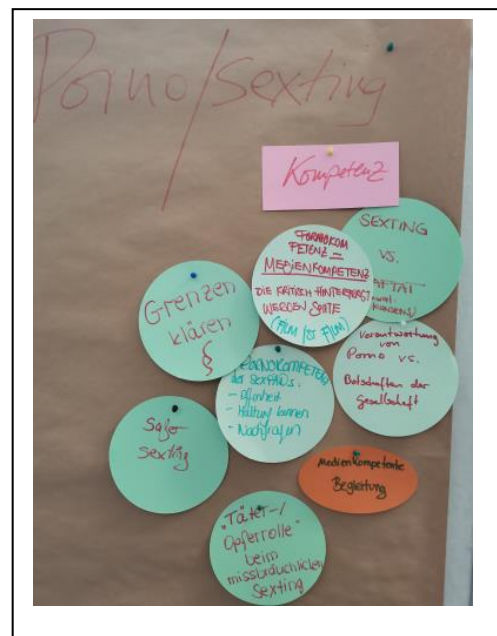 Porno/Sexting
Kompetenz
SEXTING
VS.
PORNOKOM
PETENZ =
MEDIENKOMPETENZ
DIE KRITISCH HINTERFRAGT
WERDEN SOLLTE
(FILM IST FILM)
Grenzen
klären
§
Verantwortung
von
Porno vs.
Botschaften der
Gesellschaft
PORNOKOMPETENZ
der SexPÄDs:
- Offenheit
- Haltung kennen
- Nachfragen
Safer
Sexting
Medienkompetente
Begleitung
"Täter-/
Opferrolle"
beim
missbräuchlichen
Sexting